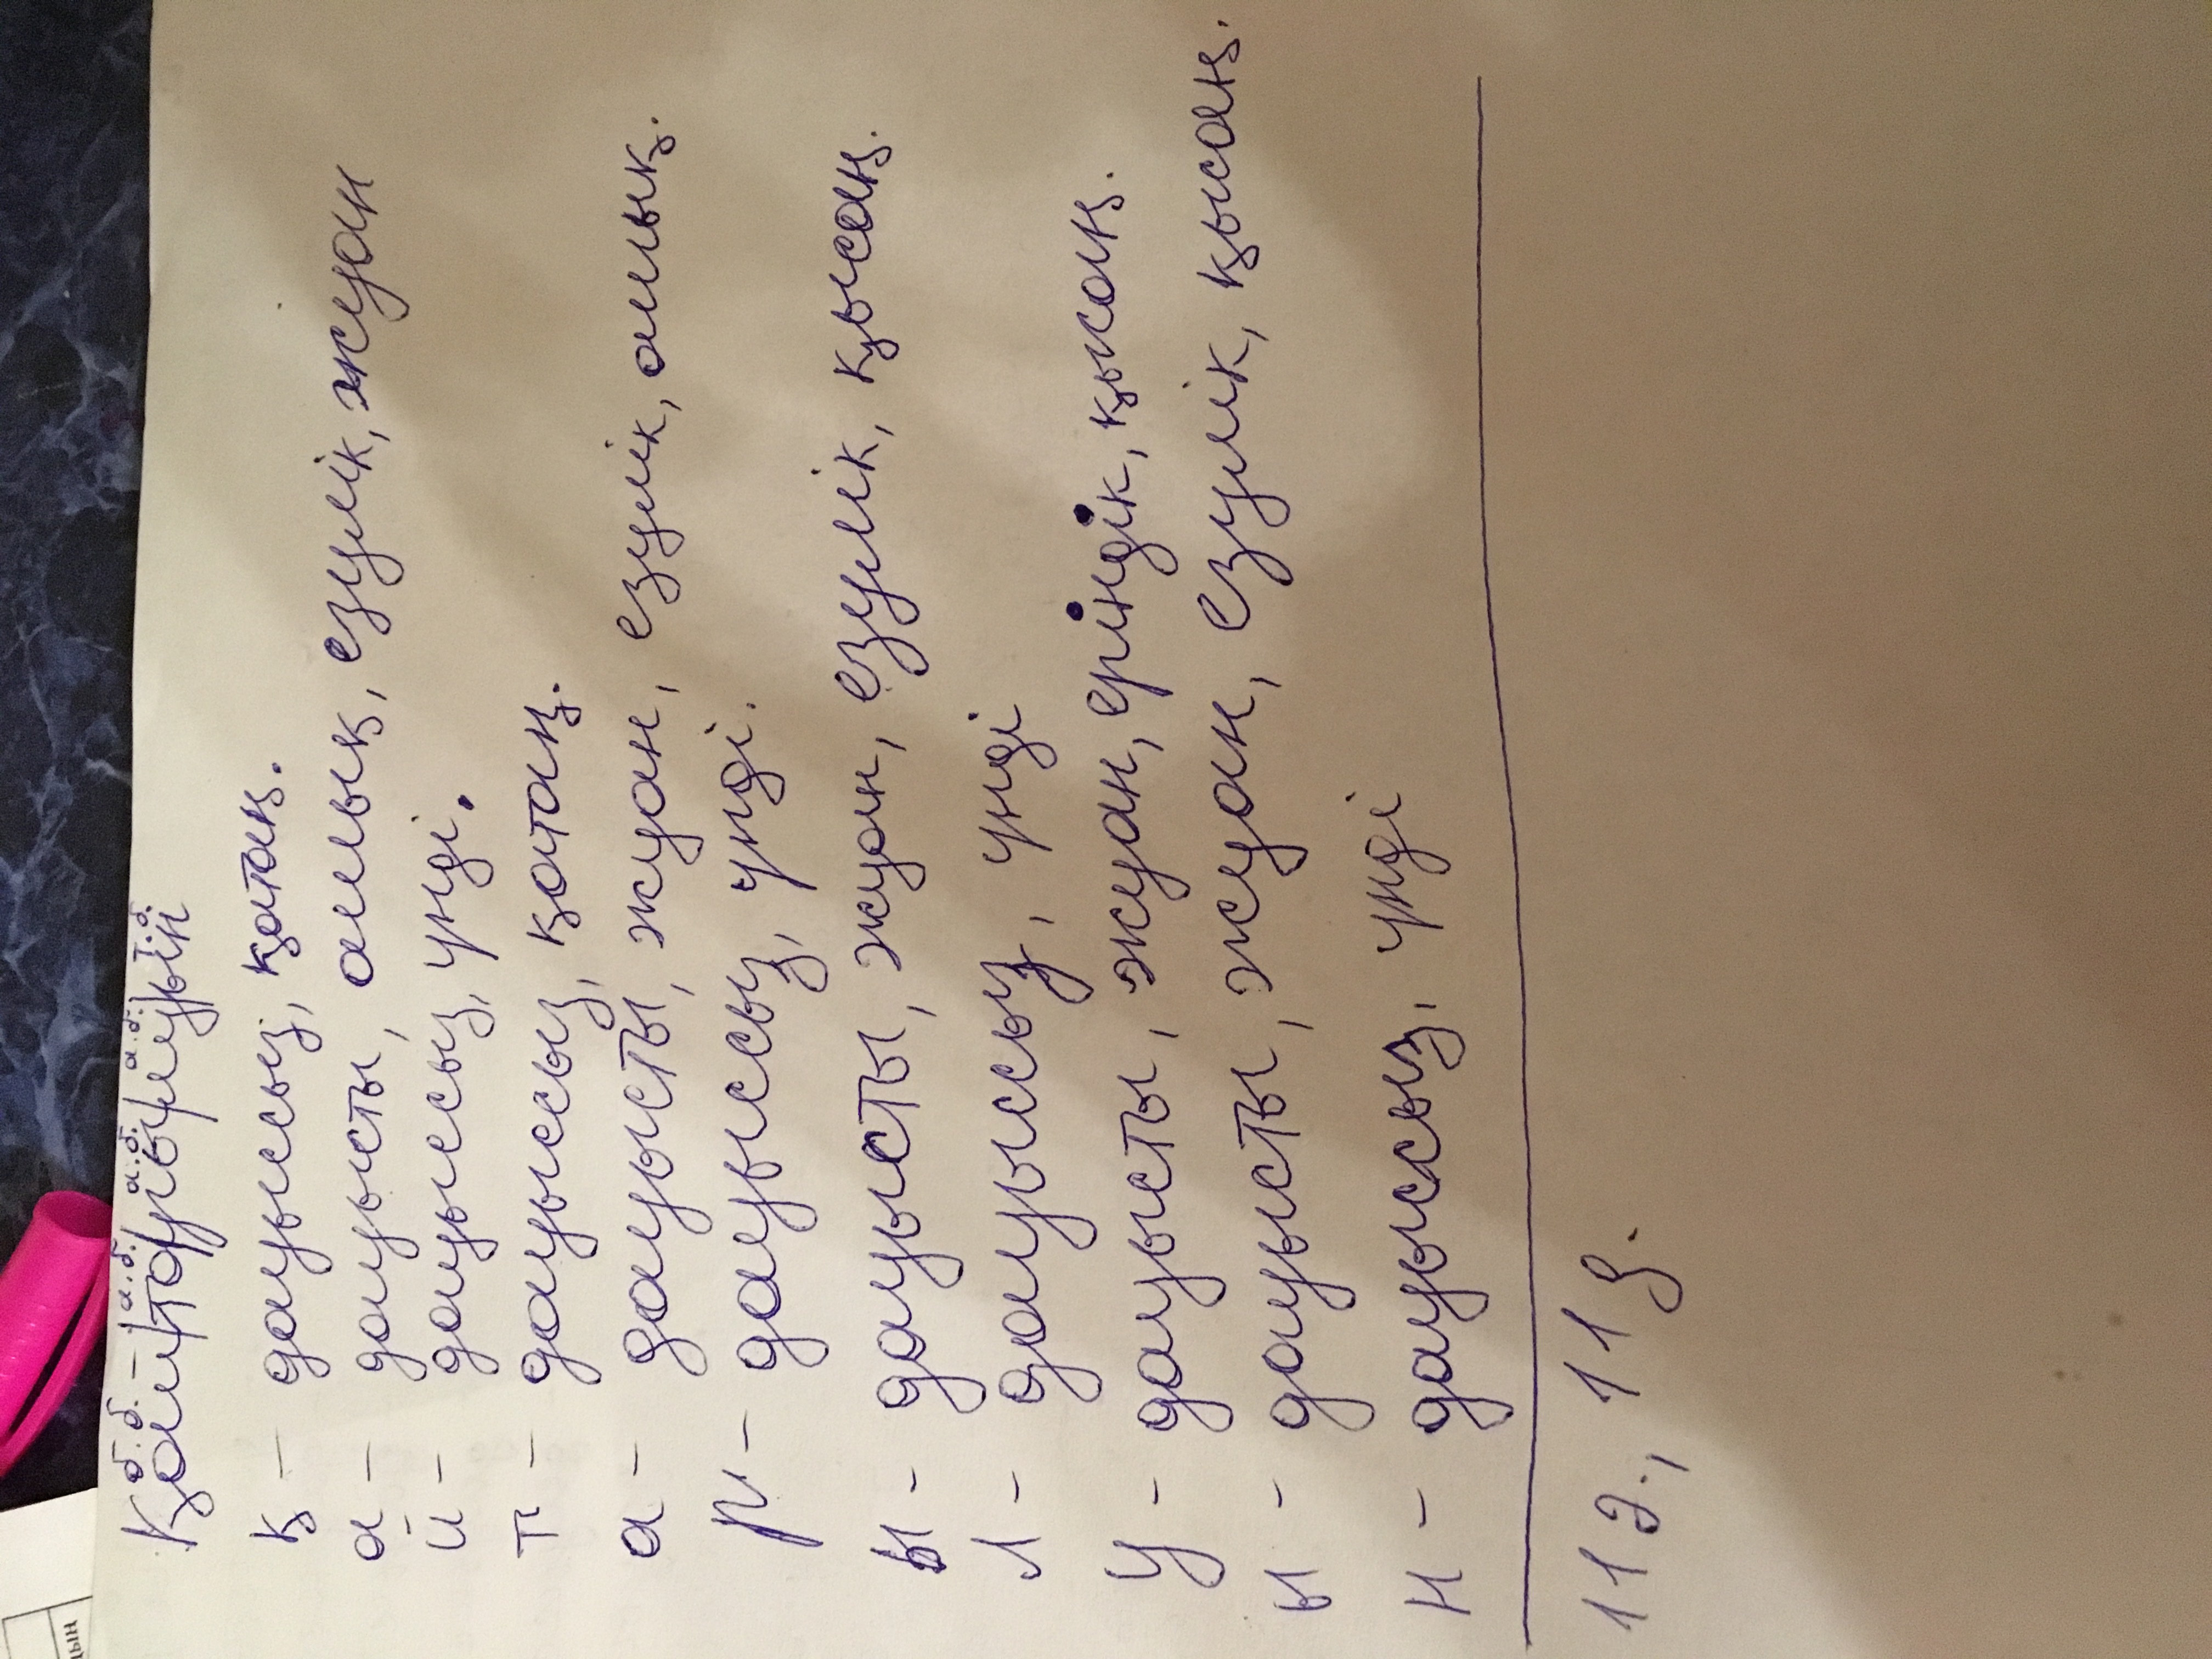 Қай-та-ры-лу-ын
қ - дауыссыз, қатаң.
а - дауысты, ашық, езулік, жуан
й - дауыссыз, үнді.
т - дауыссыз, қатаң.
а - дауысты, жуан, езулік, ашық.
р - дауыссыз, үнді.
ы - дауысты, жуан, езулік, қысаң.
л - дауыссыз, үнді
у - дауысты, жуан, еріндік, қысаң.
ы - дауысты, жуан, езулік, қысаң.
н - дауыссыз, үнді
11 ә., 11 д.
дын